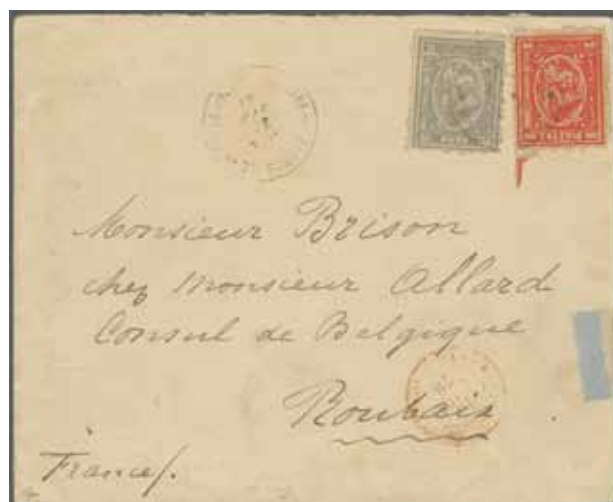 Monsieur Brison
chez Monsieur Allard
Consul de Belgique
Roubaix
France/.